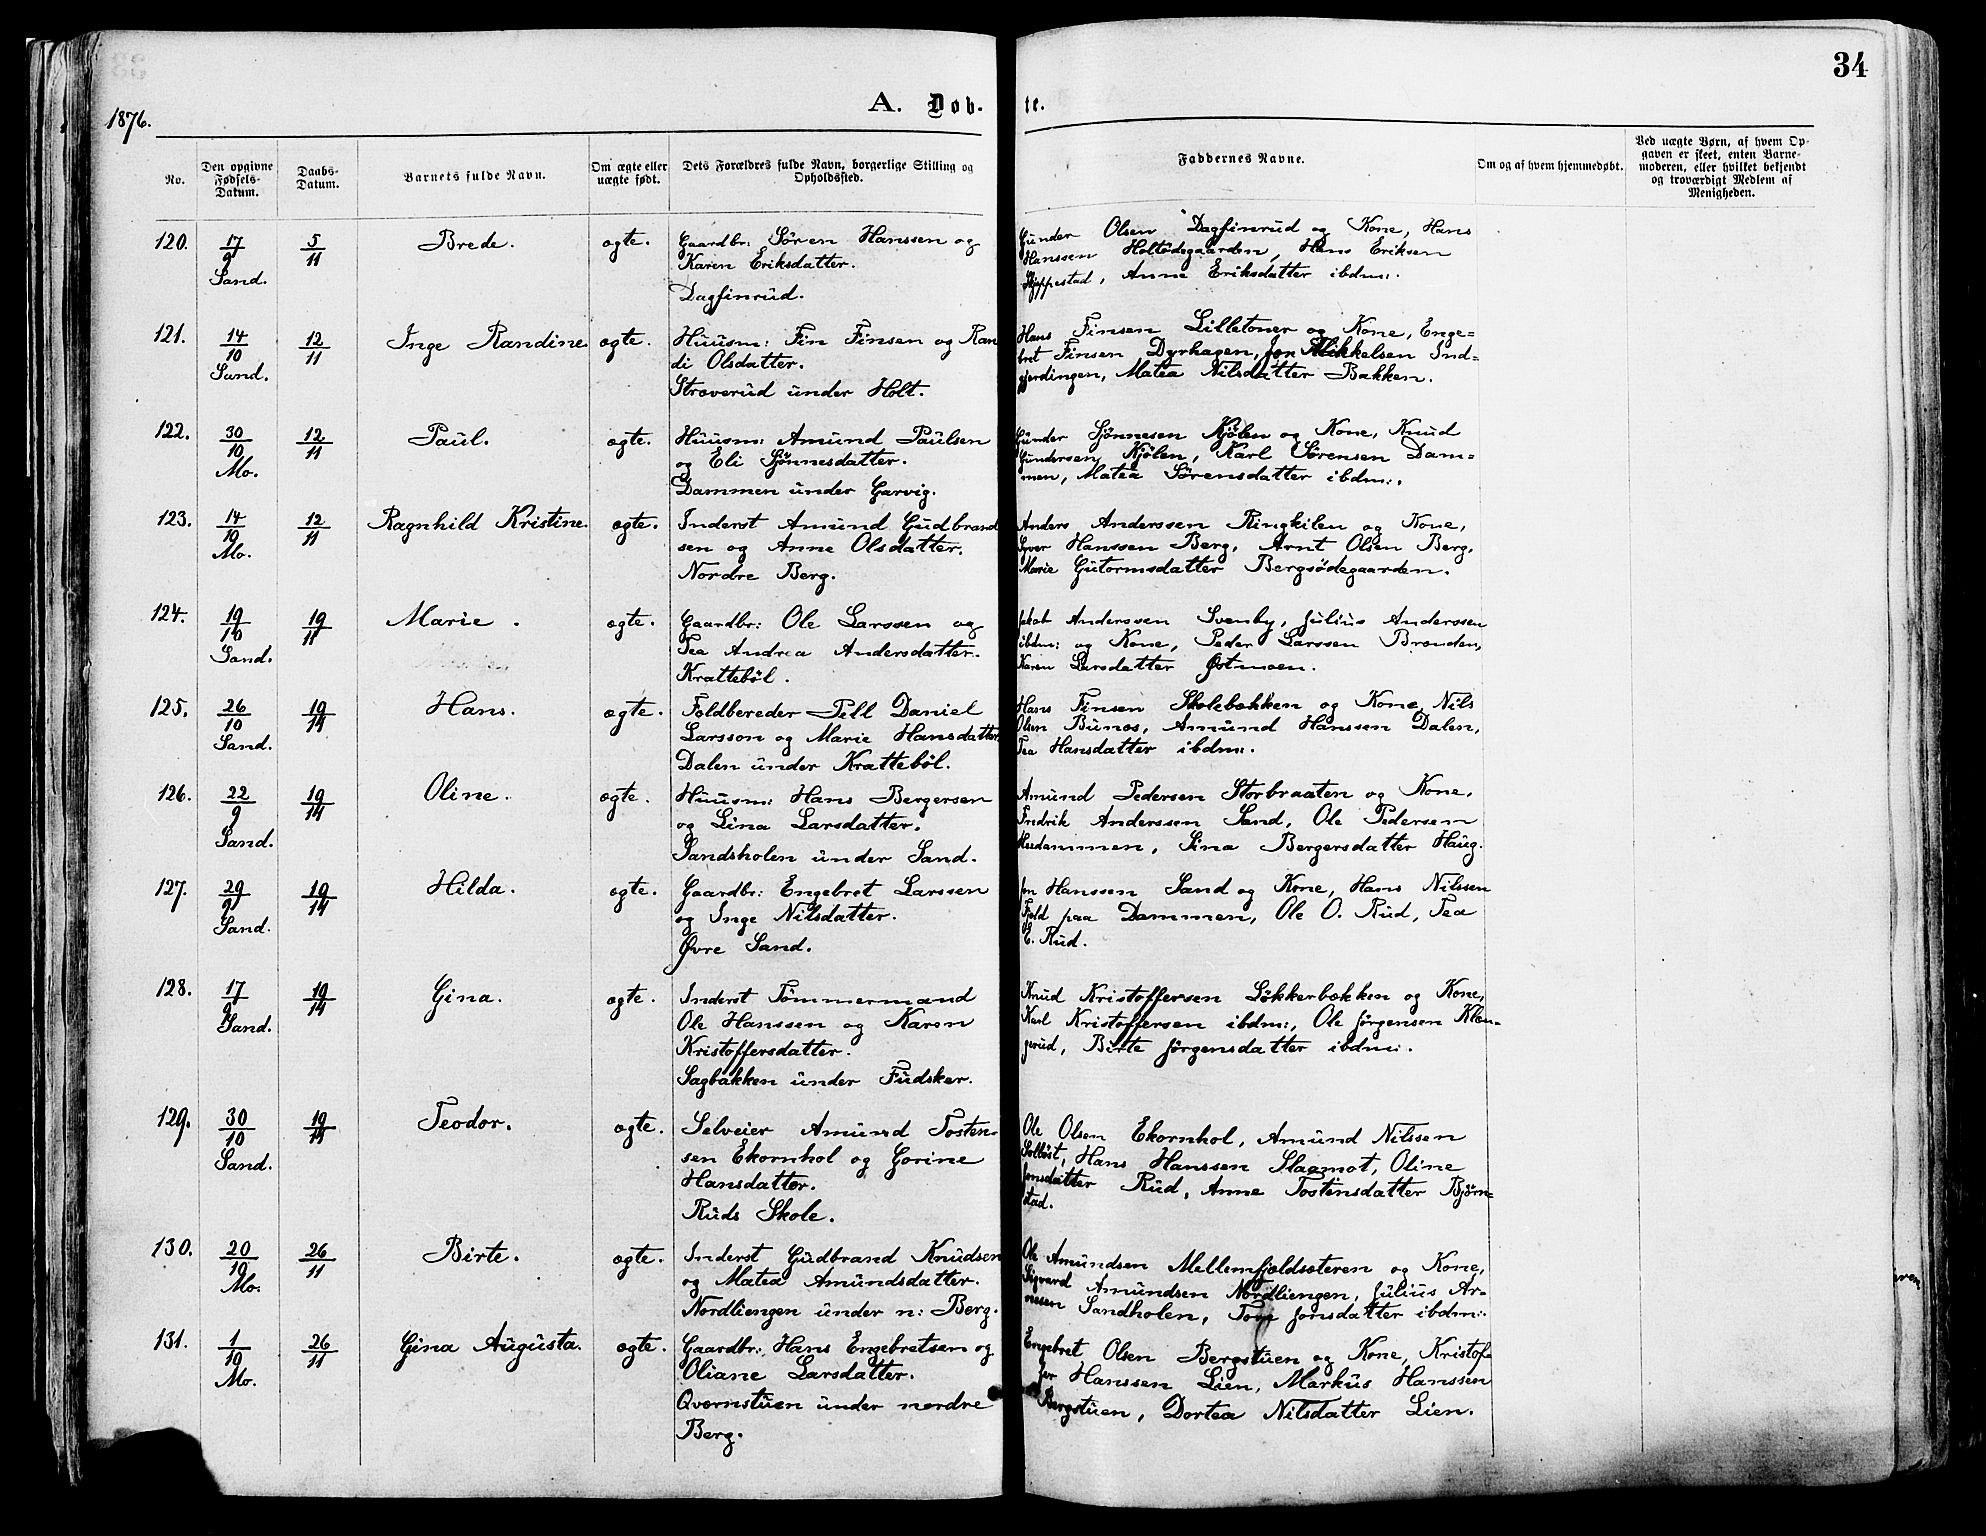 34
1876.
A. Døb- te.
No.
Den opgivne Fødsels-Datum.
Daabs-Datum.
Barnets fulde Navn.
Om ægte eller uægte født.
Dets Forældres fulde Navn, borgerlige Stilling og Opholdssted.
Faddernes Navne.
Om og af hvem hjemmedøbt.
Ved uægte Børn, af hvem Opgaven er skeet, enten Barnemoderen, eller hvilket bekjendt og troværdigt Medlem af Menigheden.
120. 17/9 Sand. 5/11 Brede. ægte.
Gaardbr: Søren Hanssen og
Karen Eriksdatter.
Dagfinrud.
Gunder Olsen Dagfinrud og Kone, Hans
Hanssen Holtødegaarden, Hans Eriksen
Skjeppestad, Anne Eriksdatter ibdm:.
121. 14/10 Sand. 12/11 Inge Randine ægte.
Huusm: Fin Finsen og Ran
di Olsdatter.
Straverud under Holt.
Hans Finsen Lilletoner og Kone, Enge=
bret Finsen Dyrhagen, Jon Mikkelsen Ind=
gjerdingen, Matea Nilsdatter Bakken.
122. 30/10 Mo. 12/11 Paul. ægte.
Huusm: Amund Paulsen
og Eli Sjønnesdatter.
Dammen under Garvig.
Gunder Sjønnesen Kjølen og Kone, Knud
Gundersen Kjølen, Karl Sørensen Dam=
men, Matea Sørensdatter ibdm:.
123. 14/10 Mo. 12/11 Ragnhild Kristine. ægte.
Inderst Amund Gudbrand
sen og Anne Olsdatter.
Nordre Berg.
Anders Anderssen Ringkilen og Kone,
Syver Hanssen Berg, Arnt Olsen Berg,
Marie Gutormsdatter Bergsødegaarden.
124. 19/10 Sand. 19/11 Marie. ægte.
Gaardbr: Ole Larssen og
Tea Andrea Andersdatter.
Krattebøl.
Jakob Anderssen Svenby, Julius Anderssen
ibdm: og Kone, Peder Larssen Brænden,
Karen Larsdatter Østmoen.
125. 26/10 Sand. 19/11 Hans. ægte.
Foldbereder Pell Daniel
Larsson og Marie Hansdatter.
Dalen under Krattebøl.
Hans Finsen Skolebakken og Kone, Nils
Olsen Bunæs, Amund Hanssen Dalen,
Tea Hansdatter ibdm:.
126. 22/9 Sand. 19/11 Oline. ægte.
Huusm: Hans Bergersen
og Lina Larsdatter.
Sandsholen under Sand.
Amund Pedersen Storbraaten og Kone,
Fredrik Anderssen Sand, Ole Pedersen
Hesdammen, Sina Bergersdatter Haug.
127. 29/9 Sand. 19/11 Hilda. ægte.
Gaardbr: Engebret Larssen
og Inge Nilsdatter.
Øvre Sand.
Jon Hanssen Sand og Kone, Hans Nilssen
Fjeld paa Dammen, Ole O. Rud, Tea
E. Rud.
128. 17/9 Sand. 19/11 Gina. ægte.
Inderst Tømmermand
Ole Hanssen og Karen
Kristoffersdatter.
Sagbakken under Fudsker.
Knud Kristoffersen Løkkerbakken og Kone,
Karl Kristoffersen ibdm:, Ole Jørgensen Klæn-
gerud, Birte Jørgensdatter ibdm:.
129. 30/10 Sand. 19/11 Teodor. ægte.
Selveier Amund Tosten-
sen Ekornhol og Gorine
Hansdatter.
Ruds Skole.
Ole Olsen Ekornhol, Amund Nilssen
Solløst, Hans Hanssen Slaamot, Oline
Jonsdatter Rud, Anne Tostensdatter Bjørn=
stad.
130. 20/10 Mo. 26/11 Birte. ægte.
Inderst Gudbrand Knudsen
og Matea Amundsdatter.
Nordliengen under n: Berg.
Ole Amundsen Mellemfjeldsæteren og Kone,
Sigvard Amundsen Nordliengen, Julius Ar-
nesen Sandholen, Jonsdatter ibdm:.
131. 1/10 Mo. 26/11 Gina Augusta. ægte.
Gaardbr: Hans Engebretsen og
Oliane Larsdatter.
Qvernstuen under nordre
Berg.
Engebret Olsen Bergstuen og Kone, Kristof-
fer Hanssen Lien, Markus Hanssen
Bergstuen, Dortea Nilsdatter Lien.